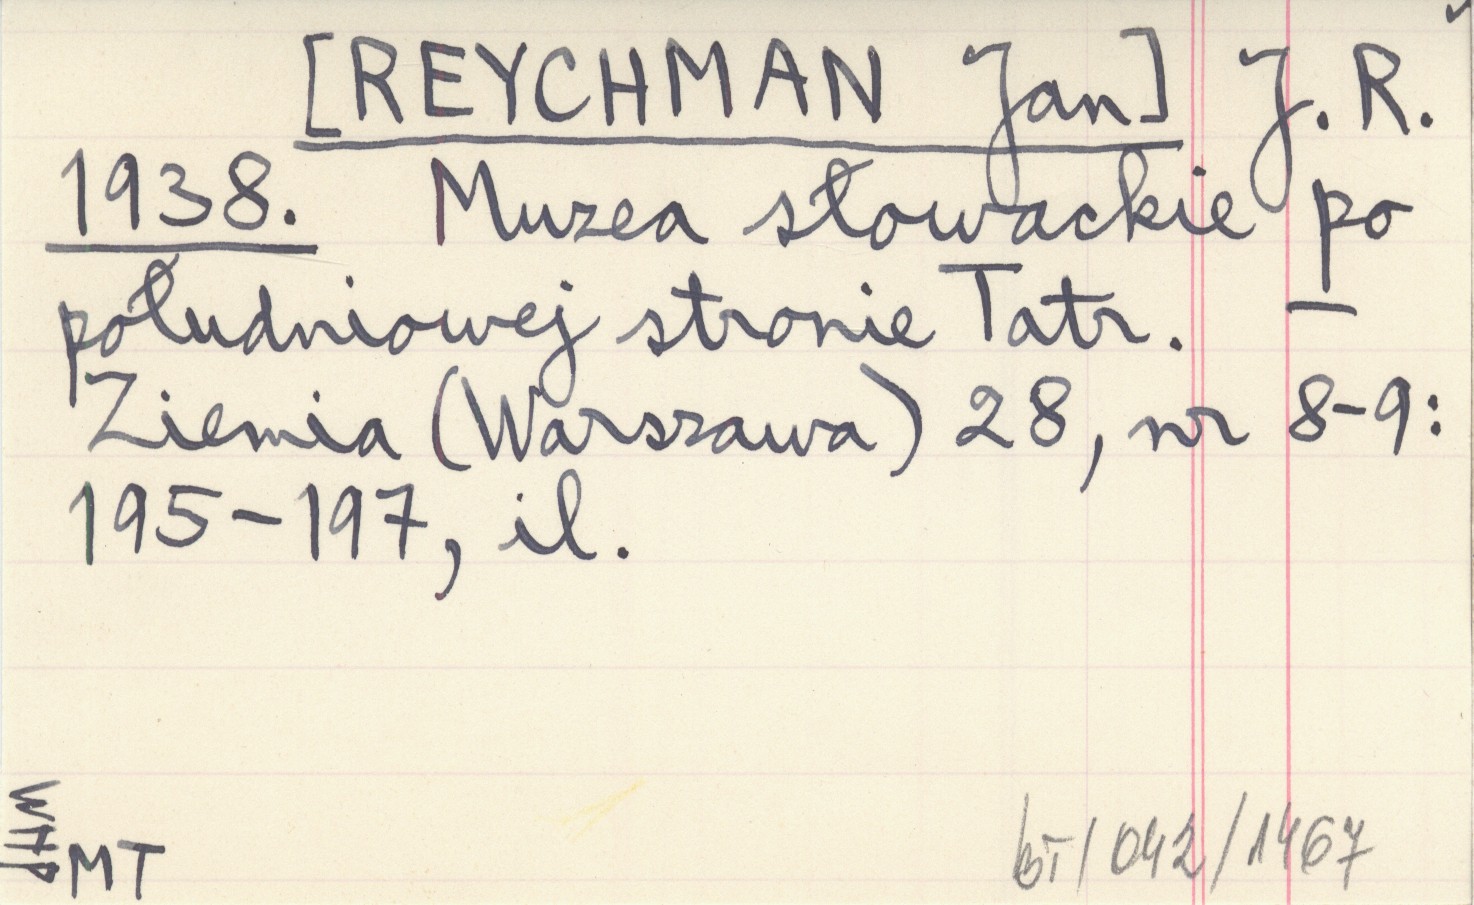 [REYCHMAN Jan] J. R.
1938. Muzea słowackie po
południowej stronie Tatr. —
Ziemia (Warszawa) 28, nr 8-9:
195-197, il.
MT
/042/1467